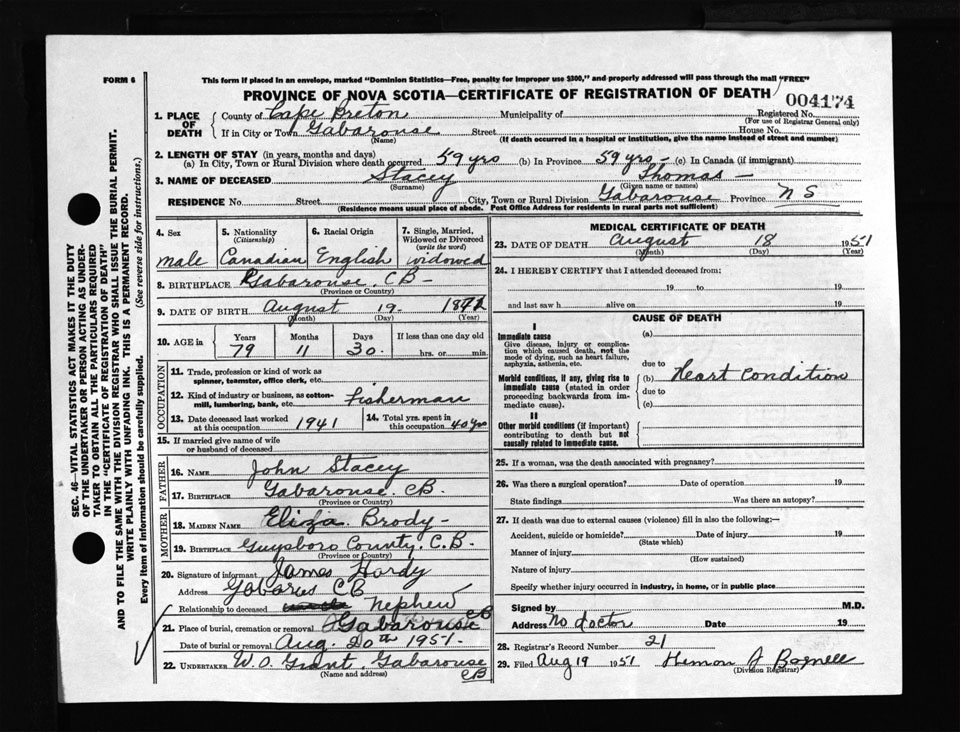 FORM 6
This form if placed in an envelope, marked "Dominion Statistics—Free, penalty for improper use $300," and properly addressed will pass through the mail "FREE"
PROVINCE OF NOVA SCOTIA—CERTIFICATE OF REGISTRATION OF DEATH
004174
1. PLACE OF DEATH
County of Cape Breton Municipality of Registered No.
(For use of Registrar General only)
If in City or Town Gabarouse Street House No.
(Name) (If death occurred in a hospital or institution, give the name instead of street and number)
2. LENGTH OF STAY (in years, months and days)
(a) In City, Town or Rural Division where death occurred 59 yrs (b) In Province 59 yrs – (c) In Canada (if immigrant)
3. NAME OF DECEASED Stacey Thomas –
(Surname) (Given name or names)
RESIDENCE No. Street City, Town or Rural Division Gabarouse Province N S
(Residence means usual place of abode. Post Office Address for residents in rural parts not sufficient)
4. Sex
male
5. Nationality
(Citizenship)
Canadian
6. Racial Origin
English
7. Single, Married, Widowed or Divorced
(write the word)
widowed
8. BIRTHPLACE Gabarouse, CB –
(Province or Country)
9. DATE OF BIRTH August 19. 1872
(Month) (Day) (Year)
10. AGE in Years Months Days If less than one day old
79 11 30. hrs. or min.
OCCUPATION
11. Trade, profession or kind of work as
spinner, teamster, office clerk, etc.
12. Kind of industry or business, as cotton-
mill, lumbering, bank, etc. Fisherman
13. Date deceased last worked
at this occupation 1941
14. Total yrs. spent in
this occupation 40 yrs
15. If married give name of wife
or husband of deceased
FATHER
16. NAME John Stacey
17. BIRTHPLACE Gabarouse. CB.
(Province or Country)
MOTHER
18. MAIDEN NAME Eliza. Brody –
19. BIRTHPLACE Guysboro County. C.B.
(Province or Country)
20. Signature of informant James Hardy
Address Gabarus CB
Relationship to deceased Nephew
21. Place of burial, cremation or removal Gabarouse CB
Date of burial or removal Aug. 20th 1951.
22. UNDERTAKER W. O. Grant, Gabarouse
(Name and address) CB
MEDICAL CERTIFICATE OF DEATH
23. DATE OF DEATH August 18 1951
(Month) (Day) (Year)
24. I HEREBY CERTIFY that I attended deceased from:
19 to 19
and last saw h alive on 19
CAUSE OF DEATH
I
Immediate cause
Give disease, injury or complica-
tion which caused death, not the
mode of dying, such as heart failure,
asphyxia, asthenia, etc.
(a)
due to
Morbid conditions, if any, giving rise to
immediate cause (stated in order
proceeding backwards from im-
mediate cause).
(b) Heart Condition
due to
(c)
II
Other morbid conditions (if important)
contributing to death but not
causally related to immediate cause.
25. If a woman, was the death associated with pregnancy?
26. Was there a surgical operation? Date of operation 19
State findings Was there an autopsy?
27. If death was due to external causes (violence) fill in also the following:—
Accident, suicide or homicide? Date of injury 19
(State which)
Manner of injury
(How sustained)
Nature of injury
Specify whether injury occurred in industry, in home, or in public place
Signed by M.D.
Address No doctor Date 19
28. Registrar's Record Number 21
29. Filed Aug 19 1951 J Bagnell
(Division Registrar)
SEC. 46—VITAL STATISTICS ACT MAKES IT THE DUTY
OF THE UNDERTAKER OR PERSON ACTING AS UNDER-
TAKER TO OBTAIN ALL THE PARTICULARS REQUIRED
IN THE "CERTIFICATE OF REGISTRATION OF DEATH"
AND TO FILE THE SAME WITH THE DIVISION REGISTRAR WHO SHALL ISSUE THE BURIAL PERMIT.
WRITE PLAINLY WITH UNFADING INK. THIS IS A PERMANENT RECORD.
Every item of information should be carefully supplied. (See reverse side for instructions.)